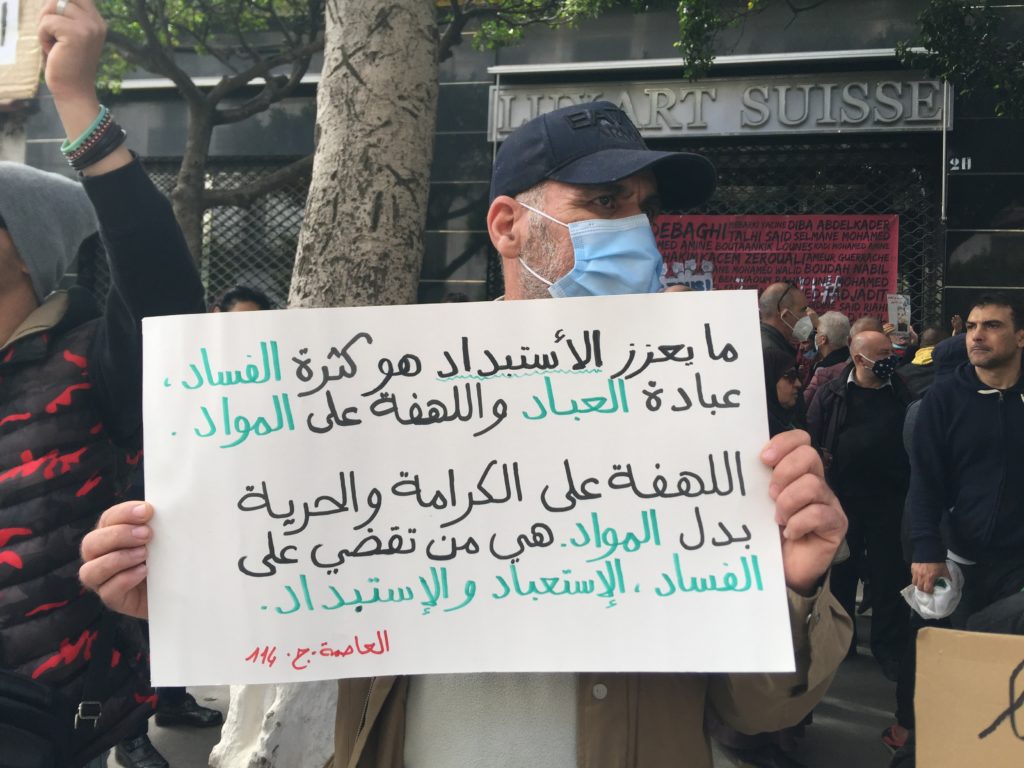 LINART SUISSE
20
DEBAGHI
MEBARKI YACINE DIBA ABDELKADER
TALHI SAID SELMANE MOHAMED
MED AMINE BOUTAANKIK LOUNES KADI MOHAMED
KACEM ZEROUAL AMEUR GUERRACHE
MOHAMED WALID BOUDAH NABIL
ما يعزز الأستبداد هو كثرة الفساد،
عبادة العباد واللهفة على المواد.
اللهفة على الكرامة والحرية
بدل المواد. هي من تقضي على
الفساد، الإستعباد والإستبداد.
العاصمة. ج. 114